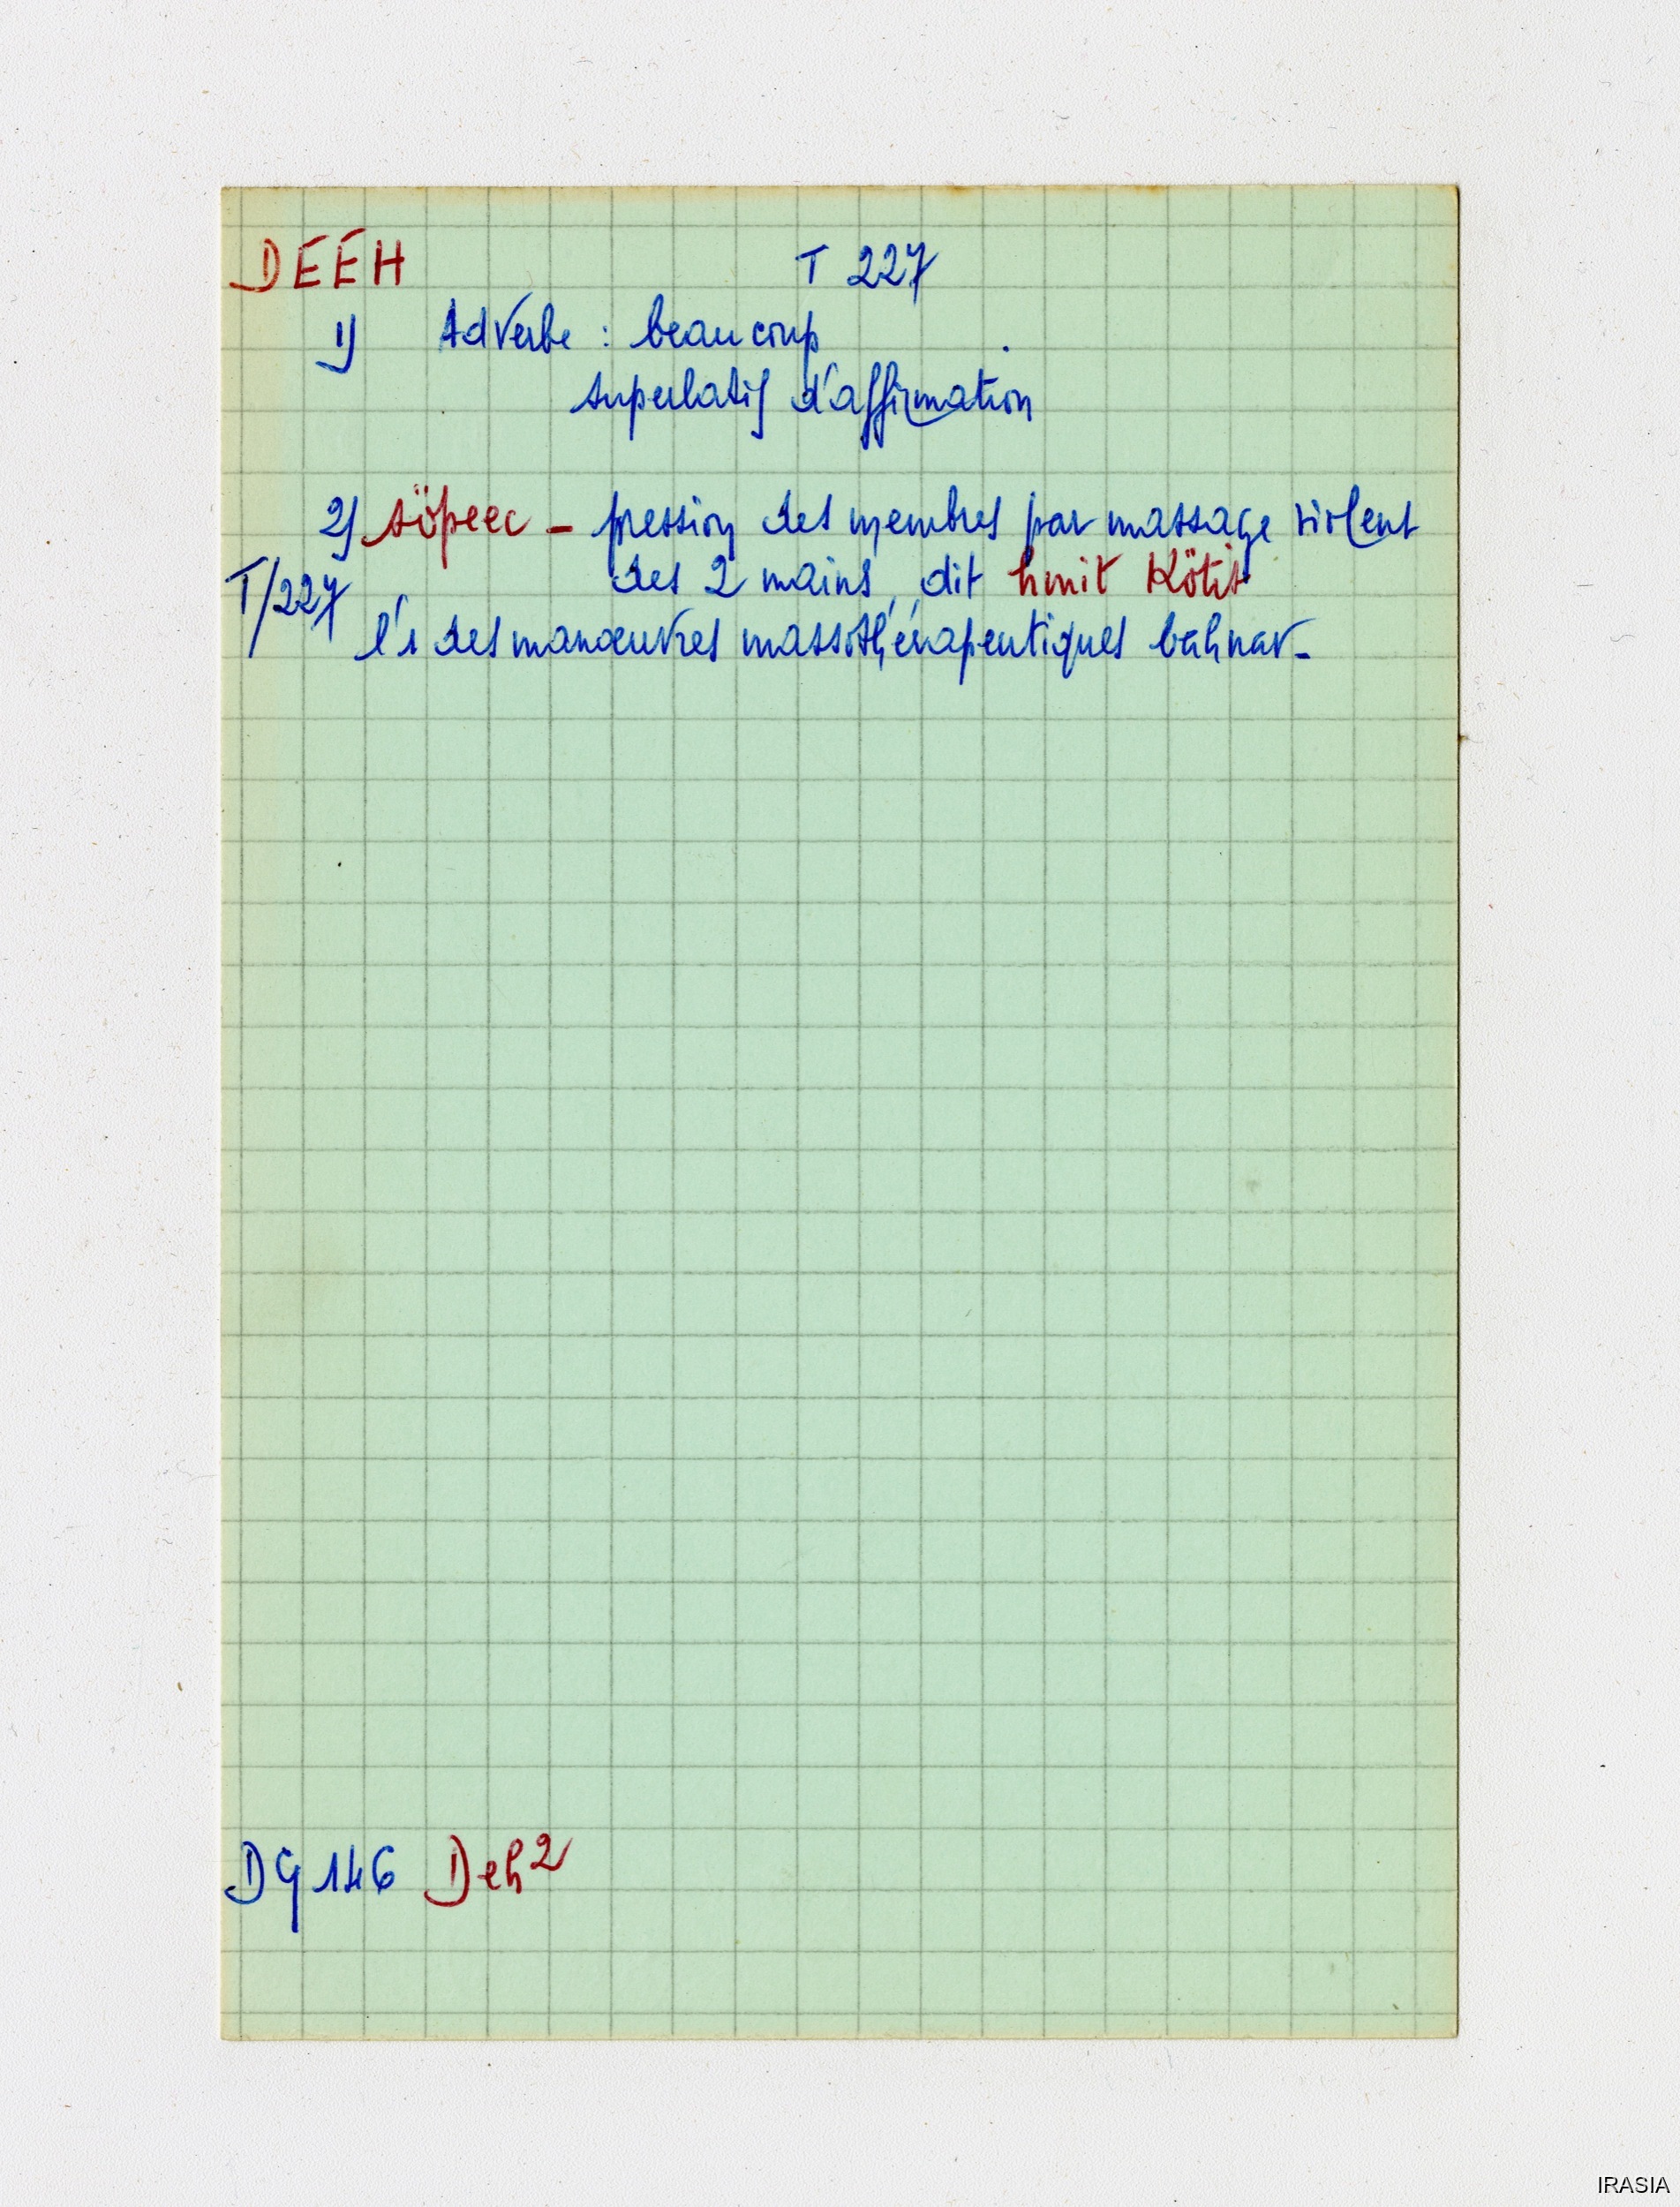 DEEH T 227
1) Adverbe : beaucoup
superlatif d'affirmation
2) söpeec - pression des membres par massage violent
des 2 mains, dit hmit Kötit
T/227
l'1 des manœuvres massothérapeutiques bahnar-
DG 146 Deh²
IRASIA